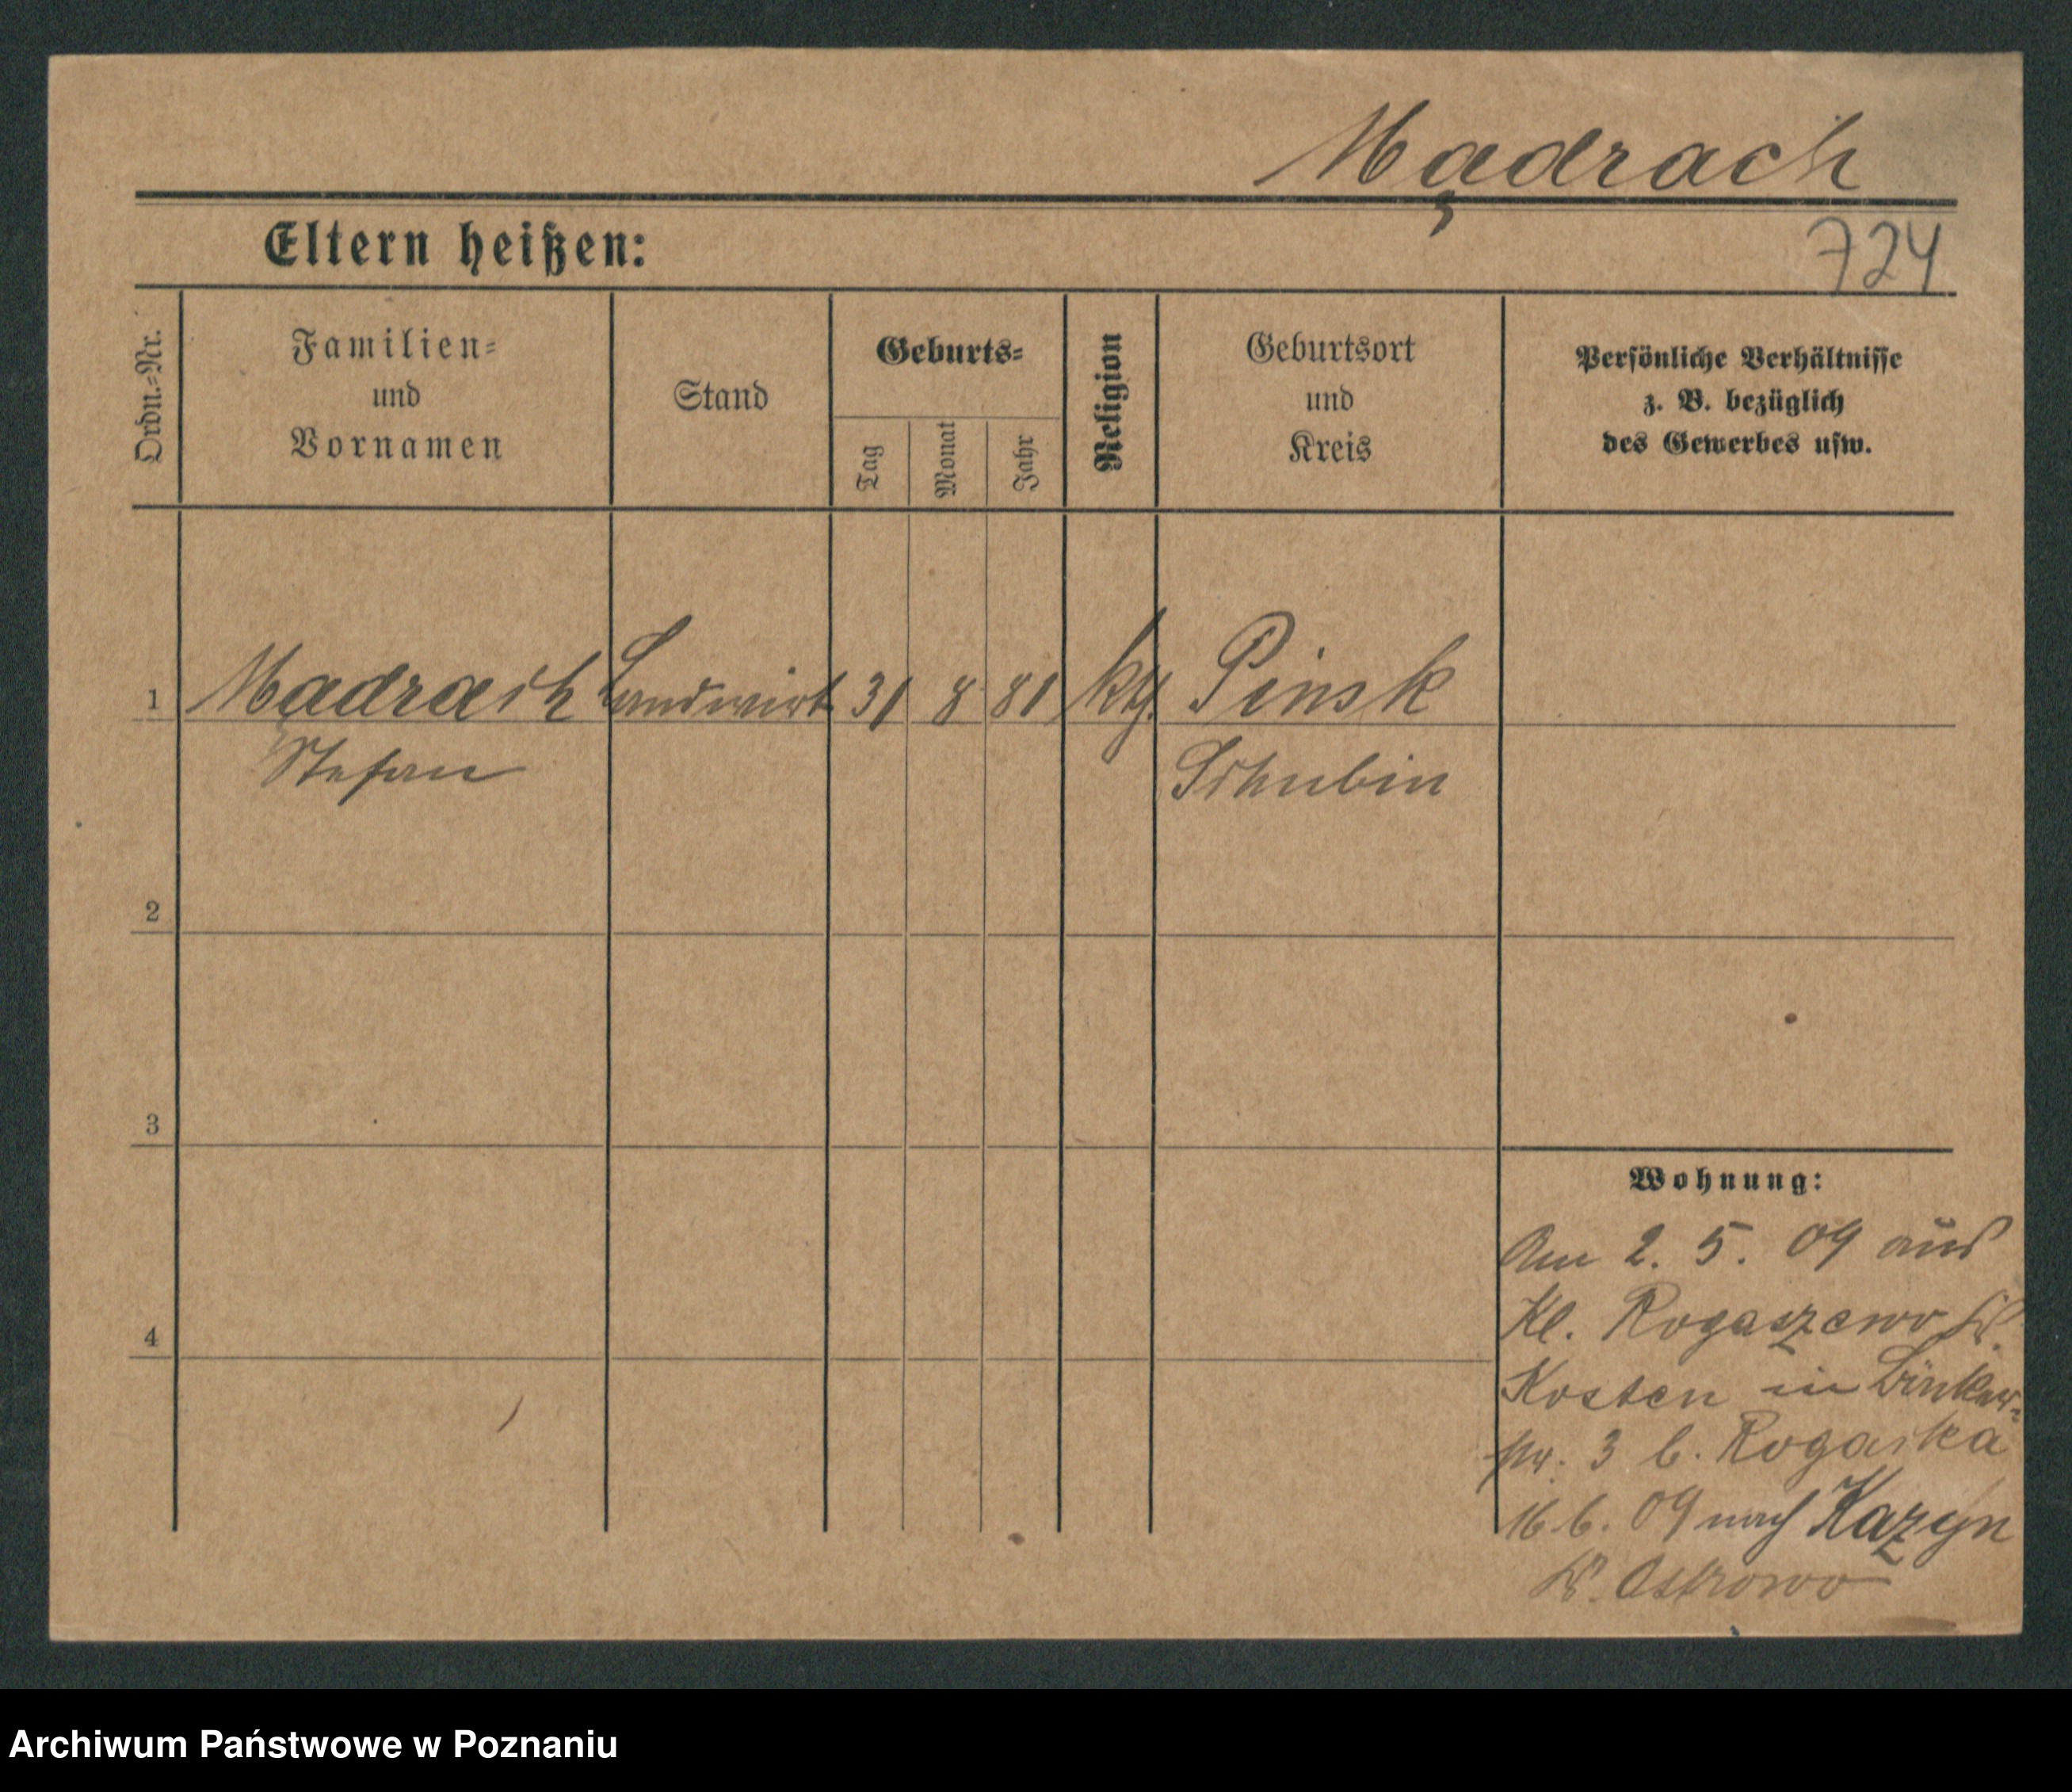 Mądrach
724
Eltern heißen:
Ordn.-Nr.
Familien-
und
Vornamen
Stand
Geburts-
Tag
Monat
Jahr
Religion
Geburtsort
und
Kreis
Persönliche Verhältnisse
z. B. bezüglich
des Gewerbes usw.
1 Mądrach Landwirt 31 8 81 kth. Pinsk
Stefan Schubin
2
3
4
Wohnung:
Am 2. 5. 09 aus
Kl. Rogaszewo K.
Kosten in
3 b. Rogaska
16. 6. 09 nach Kazyn
K. Ostrowo
Archiwum Państwowe w Poznaniu